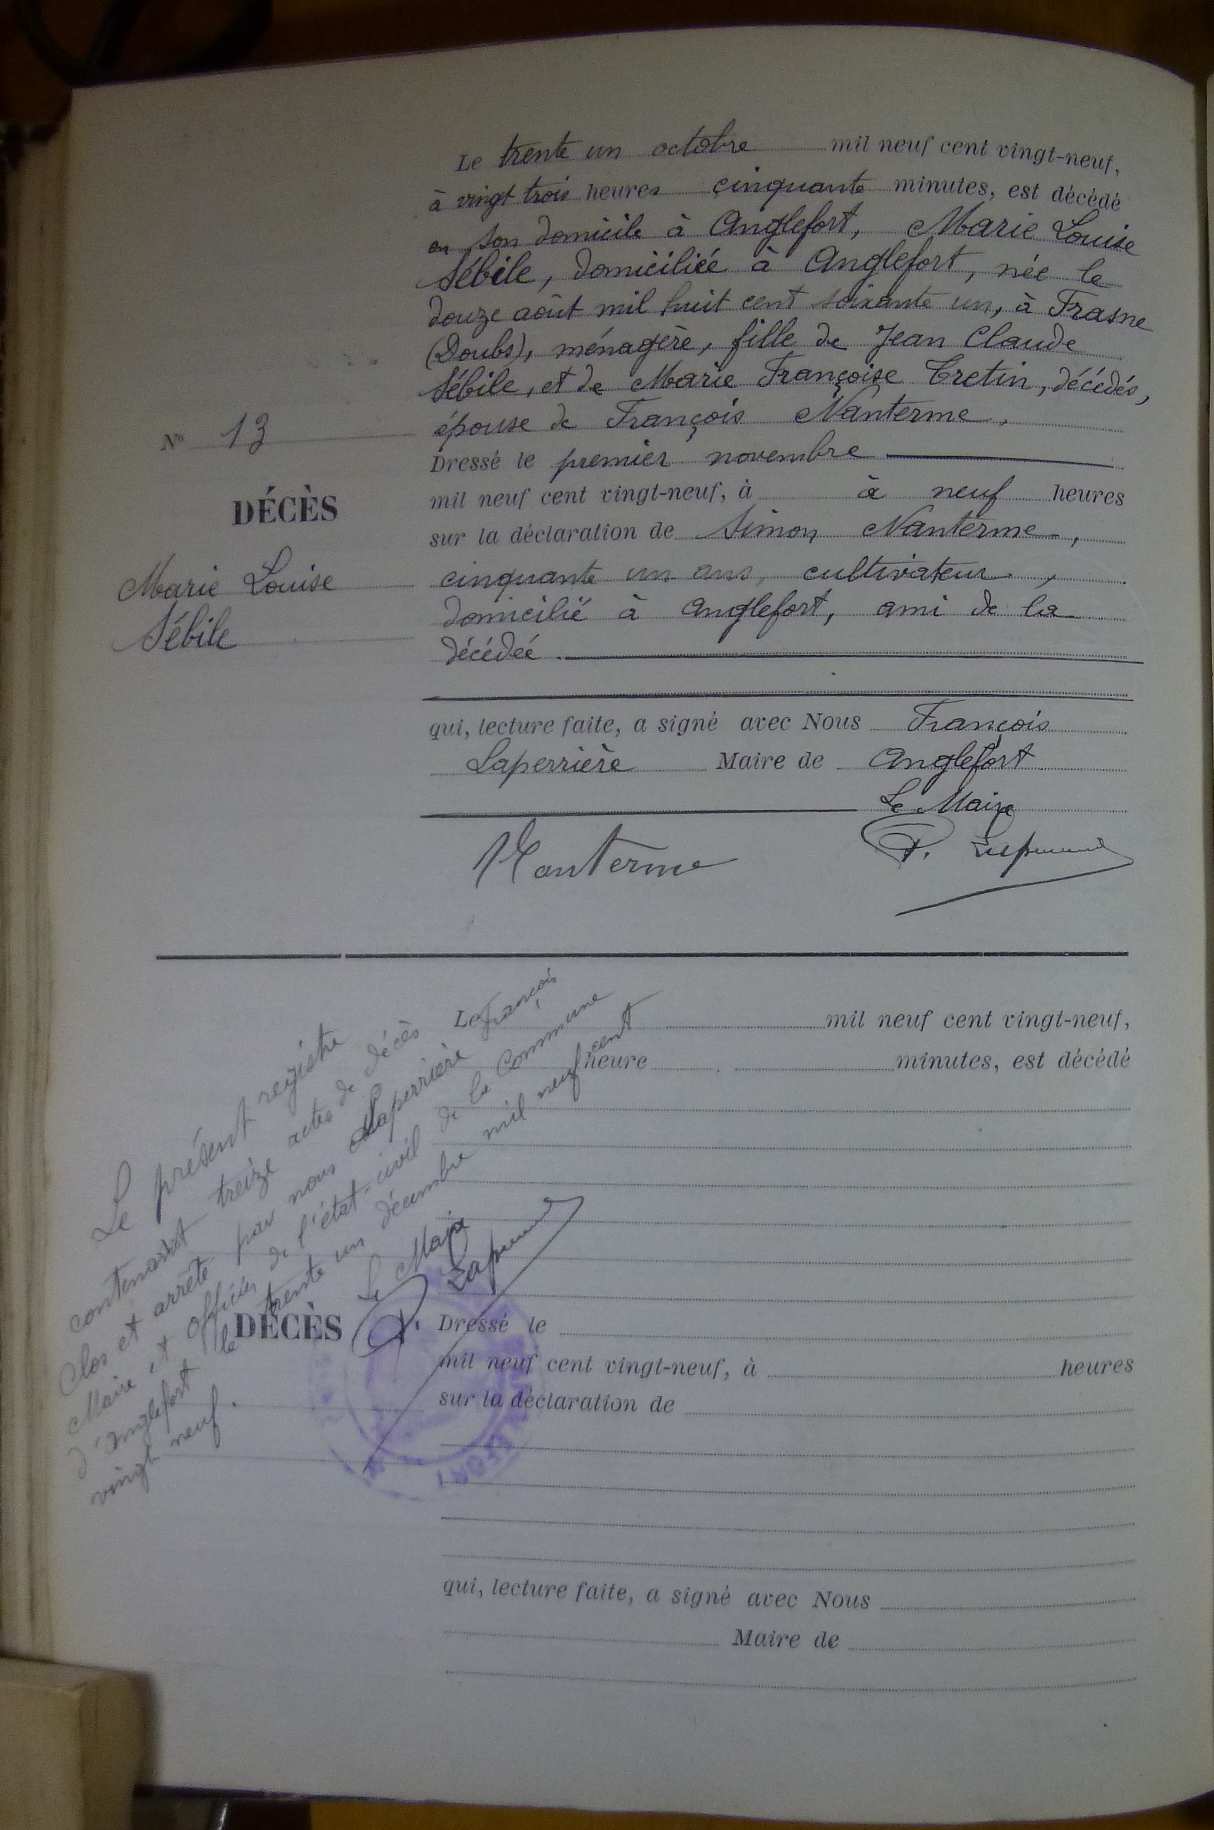 Le trente un octobre mil neuf cent vingt-neuf,
à vingt trois heures cinquante minutes, est décédé
en son domicile à Anglefort, Marie Louise
Sébile, domiciliée à Anglefort, née le
douze août mil huit cent soixante un, à Frasne
(Doubs), ménagère, fille de Jean Claude
Sébile, et de Marie Françoise Cretin, décédés,
épouse de François Nanterme.
Dressé le premier novembre
mil neuf cent vingt-neuf, à à neuf heures
sur la déclaration de Simon Nanterme,
cinquante un ans, cultivateur,
domicilié à Anglefort, ami de la
décédée.
qui, lecture faite, a signé avec Nous François
Laperrière Maire de Anglefort
Le Maire
Nanterme
N° 13
DÉCÈS
Marie Louise
Sébile
Le présent registre
contenant treize actes de décès
Clos et arrêté par nous Laperrière François
Maire et officier de l'état-civil de la Commune
d'Anglefort le trente un décembre mil neuf cent
vingt neuf.
Le Maire
Le mil neuf cent vingt-neuf,
heure minutes, est décédé
DÉCÈS
Dressé le
mil neuf cent vingt-neuf, à heures
sur la déclaration de
qui, lecture faite, a signé avec Nous
Maire de